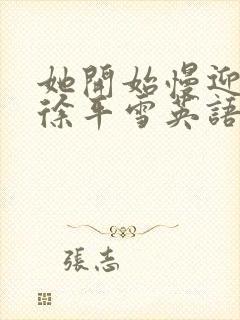 她開始慢迎
徐平雪英語
張志